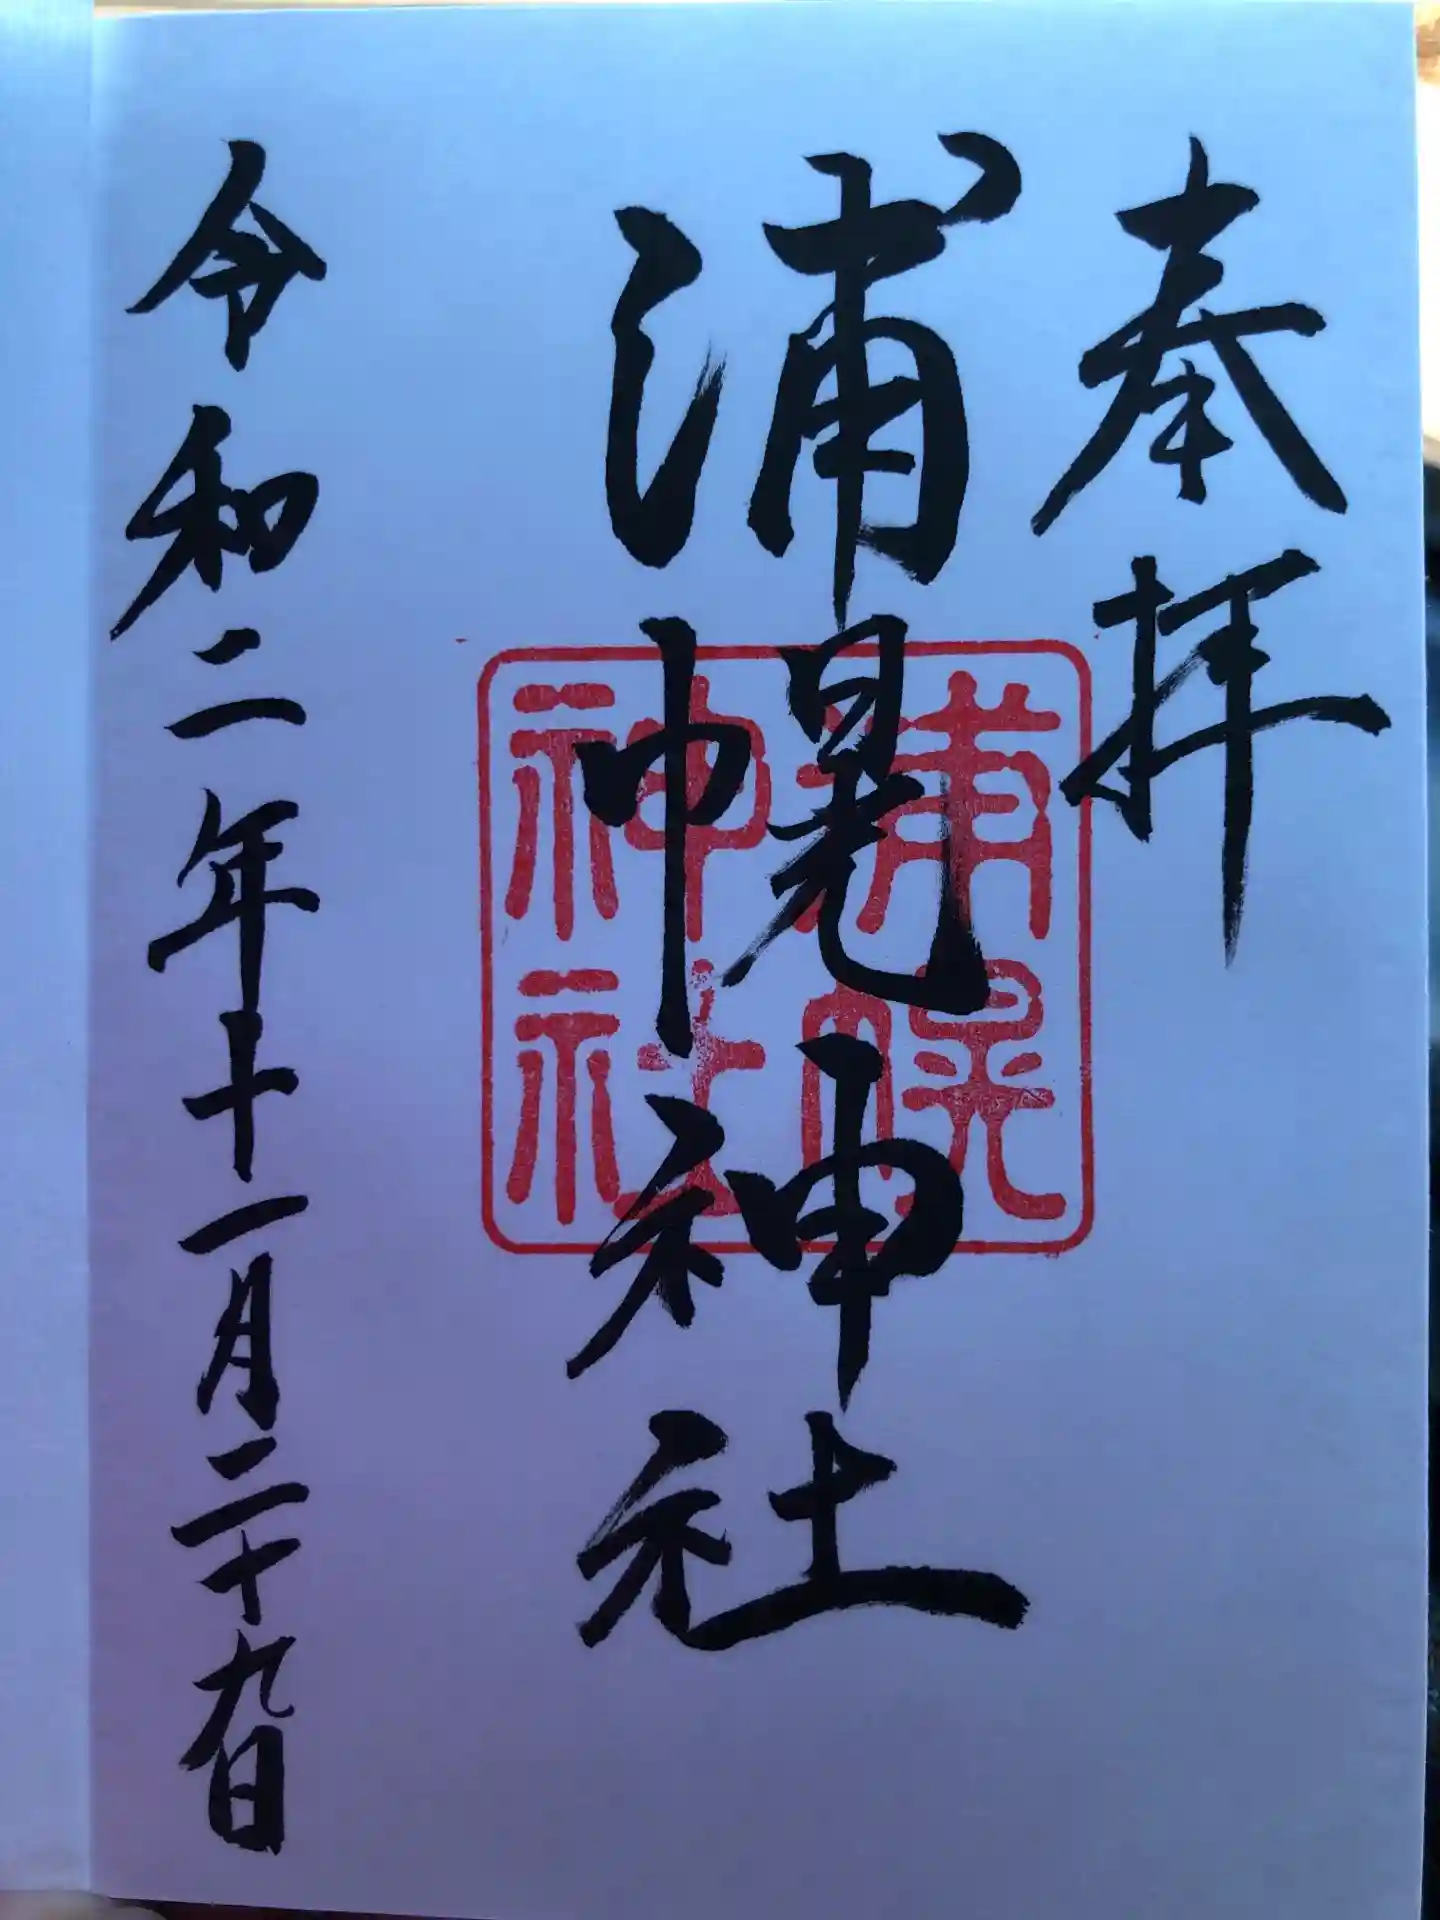 奉拝
浦幌神社
浦幌
神社
令和二年十一月二十九日